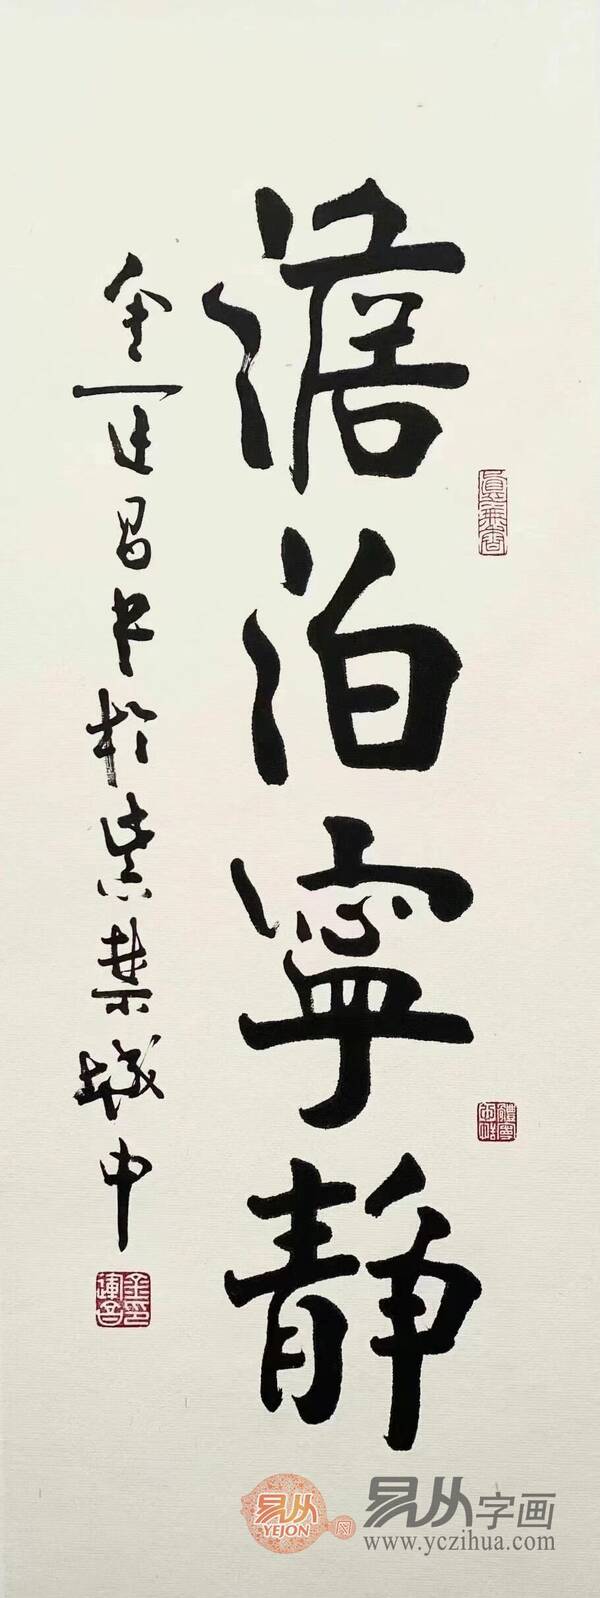 澹泊寧靜
金运昌书於紫禁城中
金運昌印
易从
YEJON
易从字画
www.yczihua.com